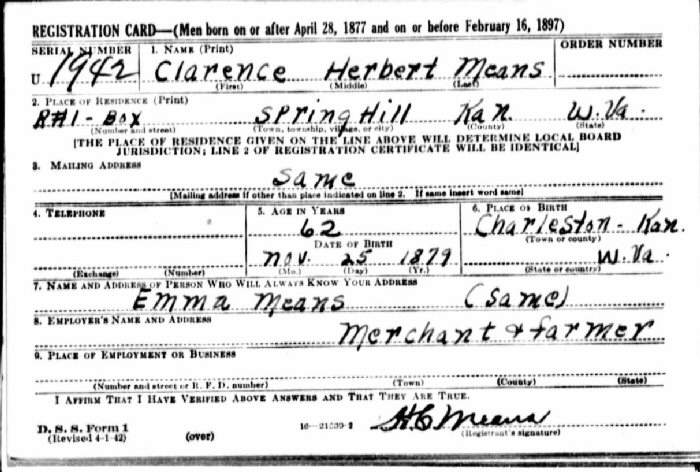 REGISTRATION CARD—(Men born on or after April 28, 1877 and on or before February 16, 1897)
SERIAL NUMBER 1. NAME (Print) ORDER NUMBER
U 1942 Clarence Herbert Means
(First) (Middle) (Last)
2. PLACE OF RESIDENCE (Print)
R#1-Box Spring Hill Kan. W.Va.
(Number and street) (Town, township, village, or city) (County) (State)
[THE PLACE OF RESIDENCE GIVEN ON THE LINE ABOVE WILL DETERMINE LOCAL BOARD
JURISDICTION; LINE 2 OF REGISTRATION CERTIFICATE WILL BE IDENTICAL]
3. MAILING ADDRESS
Same
[Mailing address if other than place indicated on line 2. If same insert word same]
4. TELEPHONE 5. AGE IN YEARS 6. PLACE OF BIRTH
62 Charleston - Kan.
DATE OF BIRTH (Town or county)
Nov. 25 1879 W.Va.
(Exchange) (Number) (Mo.) (Day) (Yr.) (State or country)
7. NAME AND ADDRESS OF PERSON WHO WILL ALWAYS KNOW YOUR ADDRESS
Emma Means (Same)
8. EMPLOYER'S NAME AND ADDRESS
Merchant & farmer
9. PLACE OF EMPLOYMENT OR BUSINESS
(Number and street or R. F. D. number) (Town) (County) (State)
I AFFIRM THAT I HAVE VERIFIED ABOVE ANSWERS AND THAT THEY ARE TRUE.
D. S. S. Form 1
(Revised 4-1-42) (over) 16—21630-2 Means
(Registrant's signature)